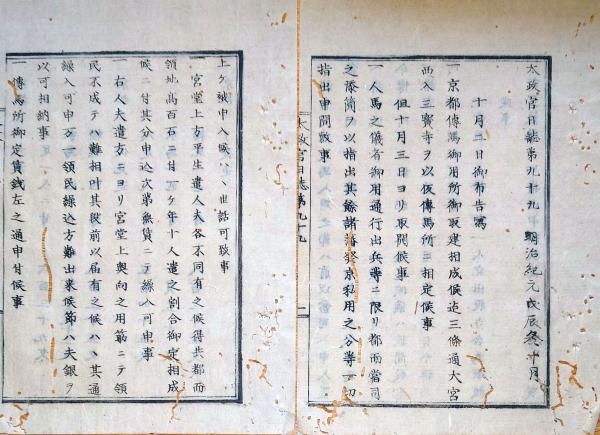 太政官日誌第九十九 明治紀元戊辰冬十月
十月二日御布告寫
一京都傳馬御用所御取建相成候迄三條通大宮
西入三寳寺ヲ以仮傳馬所ニ相定候事
但十月三日ヨリ取開候事
一人馬之儀者御用通行出兵等ニ限リ都而當司
之添簡ヲ以指出其餘諸藩發京私用之分等一切
指出申間敷事
太政官日誌第九十九
上ケ被申入候ハヽ世話可致事
一宮堂上方平生遣人夫各不同有之候得共都而
領地高百石ニ付一ケ年十人遣之割合御定相成
候ニ付其分申込次第無賃ニテ繰入可申事
一右人夫遣方ニヨリ宮堂上奥向之用節ニテ領
民不成テハ難相叶其段前以届有之候ハヽ其通
繰入可申万一領民繰込方難出来候節ハ夫銀ヲ
以可相納事
一傳馬所御定賃錢左之通申付候事